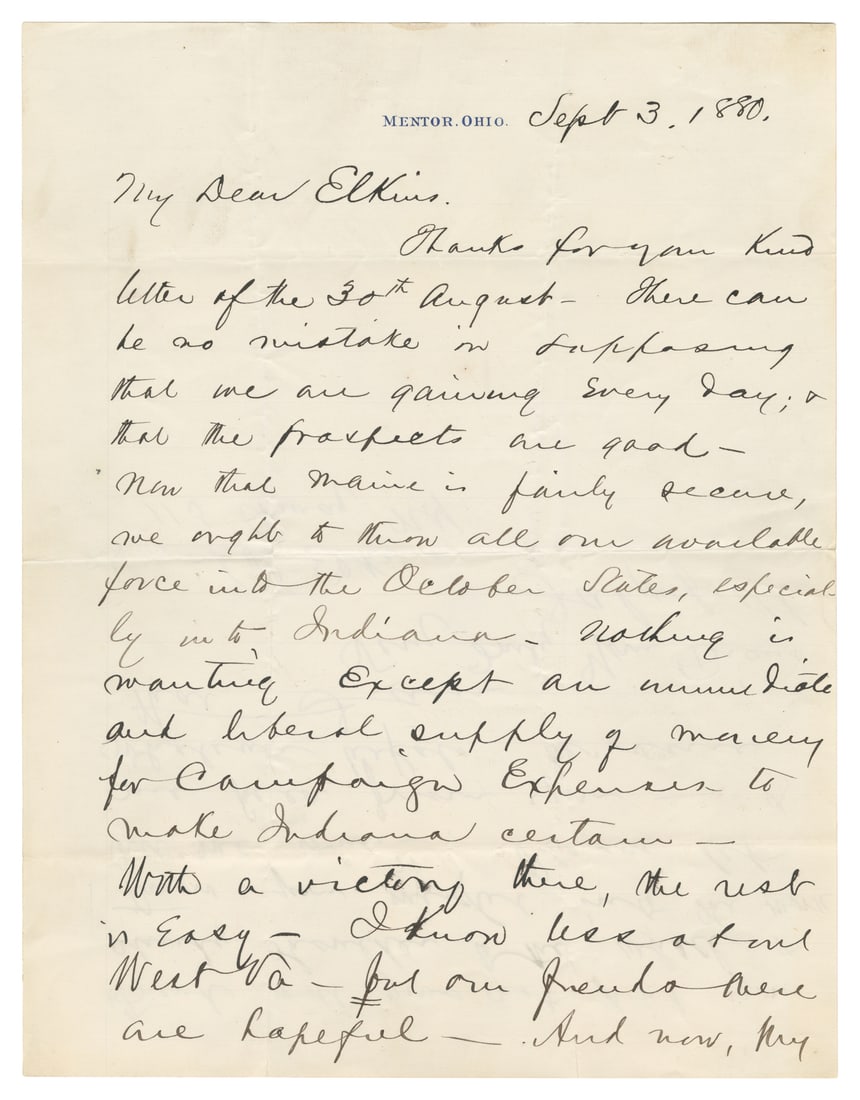 MENTOR. OHIO. Sept 3. 1880.
My Dear Elkins.
Thanks for your Kind
letter of the 30th August - There can
be no mistake in supposing
that we are gaining Every Day; &
that the prospects are good -
Now that Maine is fairly secure,
we ought to throw all our available
force into the October States, especial-
ly into Indiana - Nothing is
wanting Except an immediate
and liberal supply of money
for Campaign Expenses to
make Indiana certain -
With a victory there, the rest
is Easy - I Know less about
West Va - but our friends there
are hopeful - And now, My